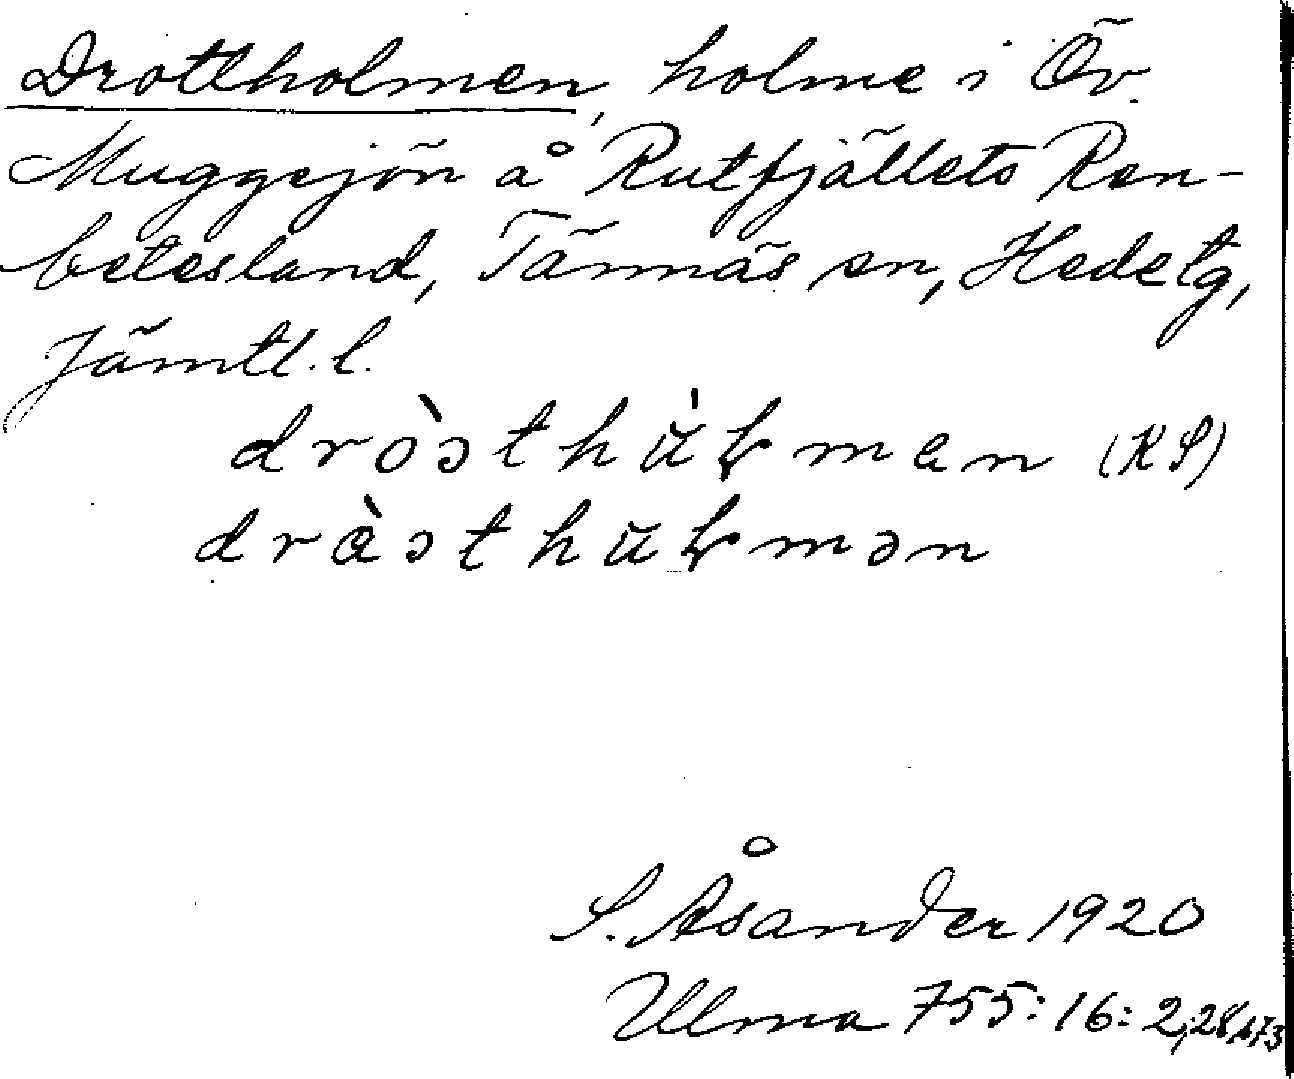 Drottholmen, holme i Öv.
Muggsjön å Rutfjällets Ren-
betesland, Tännäs sn, Hedetg,
Jämtl. l.
dròsthùɫmen (KS)
dràsthuɫmən
S. Åsander 1920
Ulma 755:16:2,28,